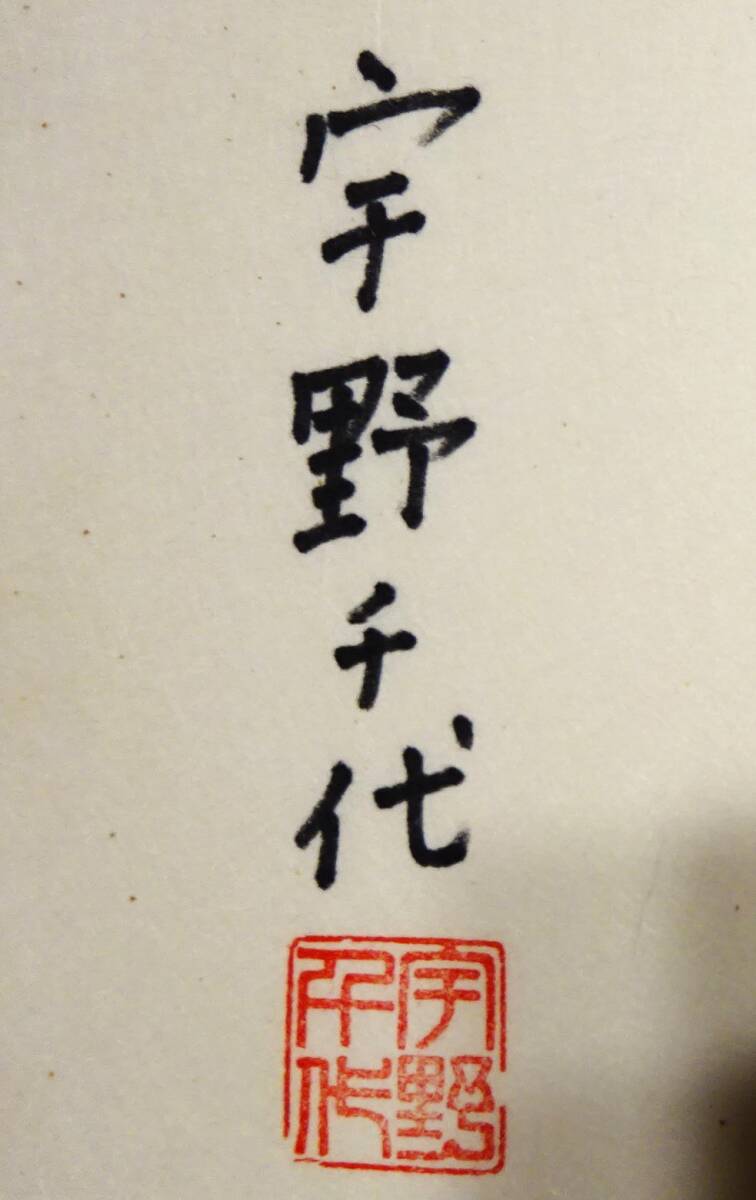 宇野千代
宇野
千代